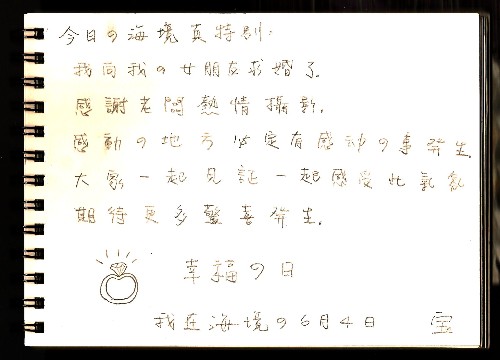 今日の海境真特別。
我向我の女朋友求婚了。
感謝老闆熱情攝影。
感動の地方必定有感神の事発生
大家一起見証一起感受此氣氛
期待更多驚喜発生。
幸福の日
我在海境の6月4日 宝